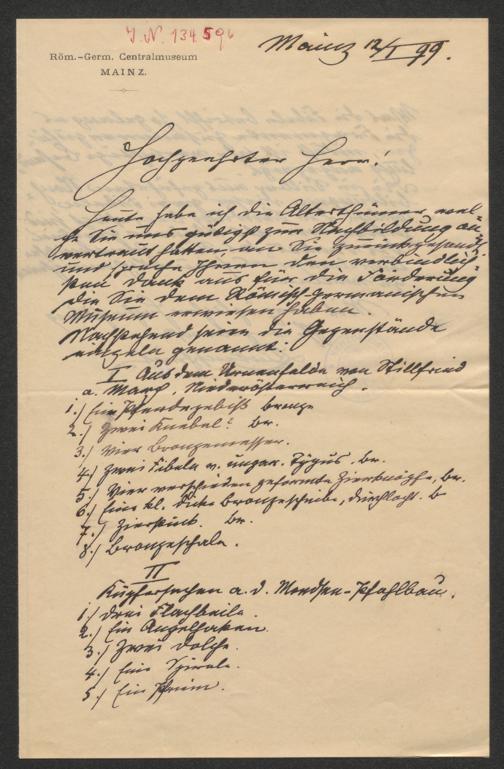 J. N. 134596
Röm.-Germ. Centralmuseum
MAINZ.
Mainz 12/I 99.
Hochgeehrter Herr!
Heute habe ich die Alterthümer, wel-
che Sie uns gütigst zur Nachbildung an-
vertraut hatten, an Sie zurückgesandt
und spreche Ihnen den verbindlich-
sten Dank aus für die Förderung
die Sie dem Römisch-Germanischen
Museum erwiesen haben.
Nachstehend seien die Gegenstände
einzeln genannt:
I Aus dem Urnenfelde von Stillfried
a. March, Niederösterreich.
1.) Ein Pferdegebiß bronze
2.) Zwei Knebel? Br.
3.) Vier Bronzemesser.
4.) Zwei Fibeln v. ungar. Typus. Br.
5.) Vier verschieden geformte Zierknöpfe, Br.
6.) Eine kl. dicke Bronzescheibe, durchlocht. B
7.) Zierstück. Br.
8.) Bronzeschale.
II
Kupfersachen a. d. Mondsee-Pfahlbau.
1.) Drei Flachbeile.
2.) Ein Angelhaken.
3.) Zwei Dolche.
4.) Eine Spirale.
5.) Ein Pfriem.